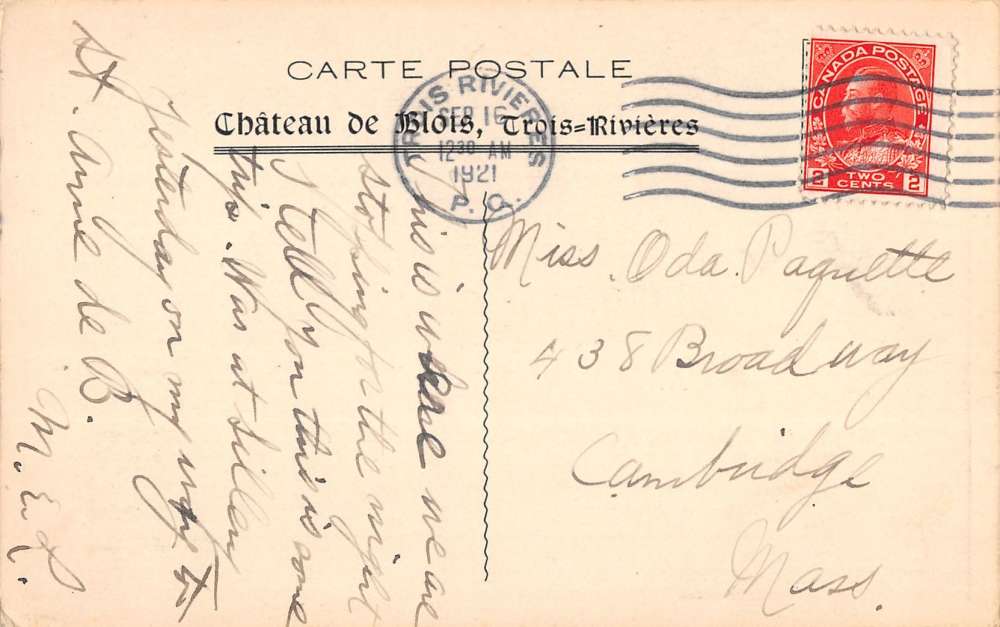 CARTE POSTALE
Château de Blois, Trois=Rivières
TROIS RIVIERES
SEP 16
12 30 AM
1921
P. Q.
CANADA POSTAGE
2 TWO CENTS 2
This is where we are
stopping for the night
I tell you this is some
trip. Was at Sillery
yesterday on my way to
St. Anne de B.
M. E. L.
Miss. Oda. Paquette
438 Broadway
Cambridge
Mass.